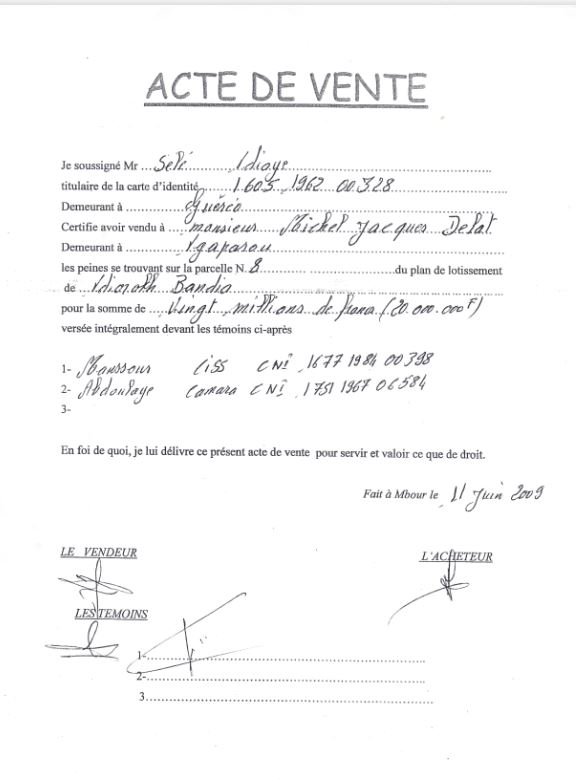 ACTE DE VENTE
Je soussigné Mr ... Sélé Ndiaye
titulaire de la carte d'identité ... 1.605 1962 00328
Demeurant à ... Guéréo
Certifie avoir vendu à ... monsieur Michel Jacques Delat
Demeurant à ... Ngaparou
les peines se trouvant sur la parcelle N. 8 ... du plan de lotissement
de ... Ndiorokh Bandia
pour la somme de ... Vingt millions de francs (20.000.000F)
versée intégralement devant les témoins ci-après
1- Manssour Ciss CNI 1677 1984 00398
2- Abdoulaye Camara CNI 1751 1967 06584
3-
En foi de quoi, je lui délivre ce présent acte de vente pour servir et valoir ce que de droit.
Fait à Mbour le 11 Juin 2009
LE VENDEUR L'ACHETEUR
LES TEMOINS
1-
2-
3